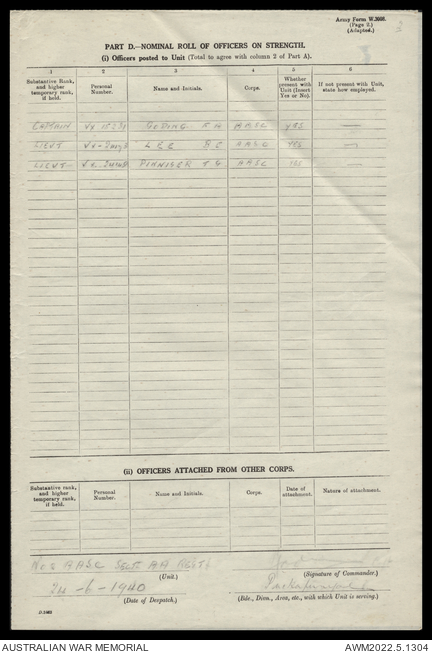 Army Form W.3008.
(Page 2.)
(Adapted.)
PART D.—NOMINAL ROLL OF OFFICERS ON STRENGTH.
(i) Officers posted to Unit (Total to agree with column 2 of Part A).
1 2 3 4 5 6
Substantive Rank, and higher temporary rank, if held. Personal Number. Name and Initials. Corps. Whether present with Unit (Insert Yes or No). If not present with Unit, state how employed.
CAPTAIN GODING AASC YES —
LIEUT LEE AASC YES —
LIEUT AASC YES —
(ii) OFFICERS ATTACHED FROM OTHER CORPS.
Substantive rank, and higher temporary rank, if held. Personal Number. Name and Initials. Corps. Date of attachment. Nature of attachment.
AASC SECT AA REGT
(Unit.) (Signature of Commander.)
24-6-1940 Puckapunyal
(Date of Despatch.) (Bde., Divn., Area, etc., with which Unit is serving.)
AUSTRALIAN WAR MEMORIAL AWM2022.5.1304